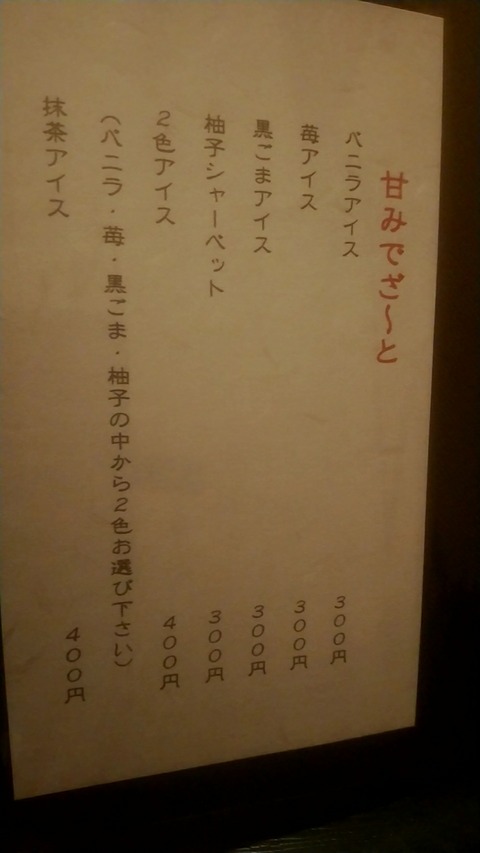 甘みでざ～と
バニラアイス 300円
苺アイス 300円
黒ごまアイス 300円
柚子シャーベット 300円
2色アイス 400円
(バニラ・苺・黒ごま・柚子の中から2色お選び下さい)
抹茶アイス 400円